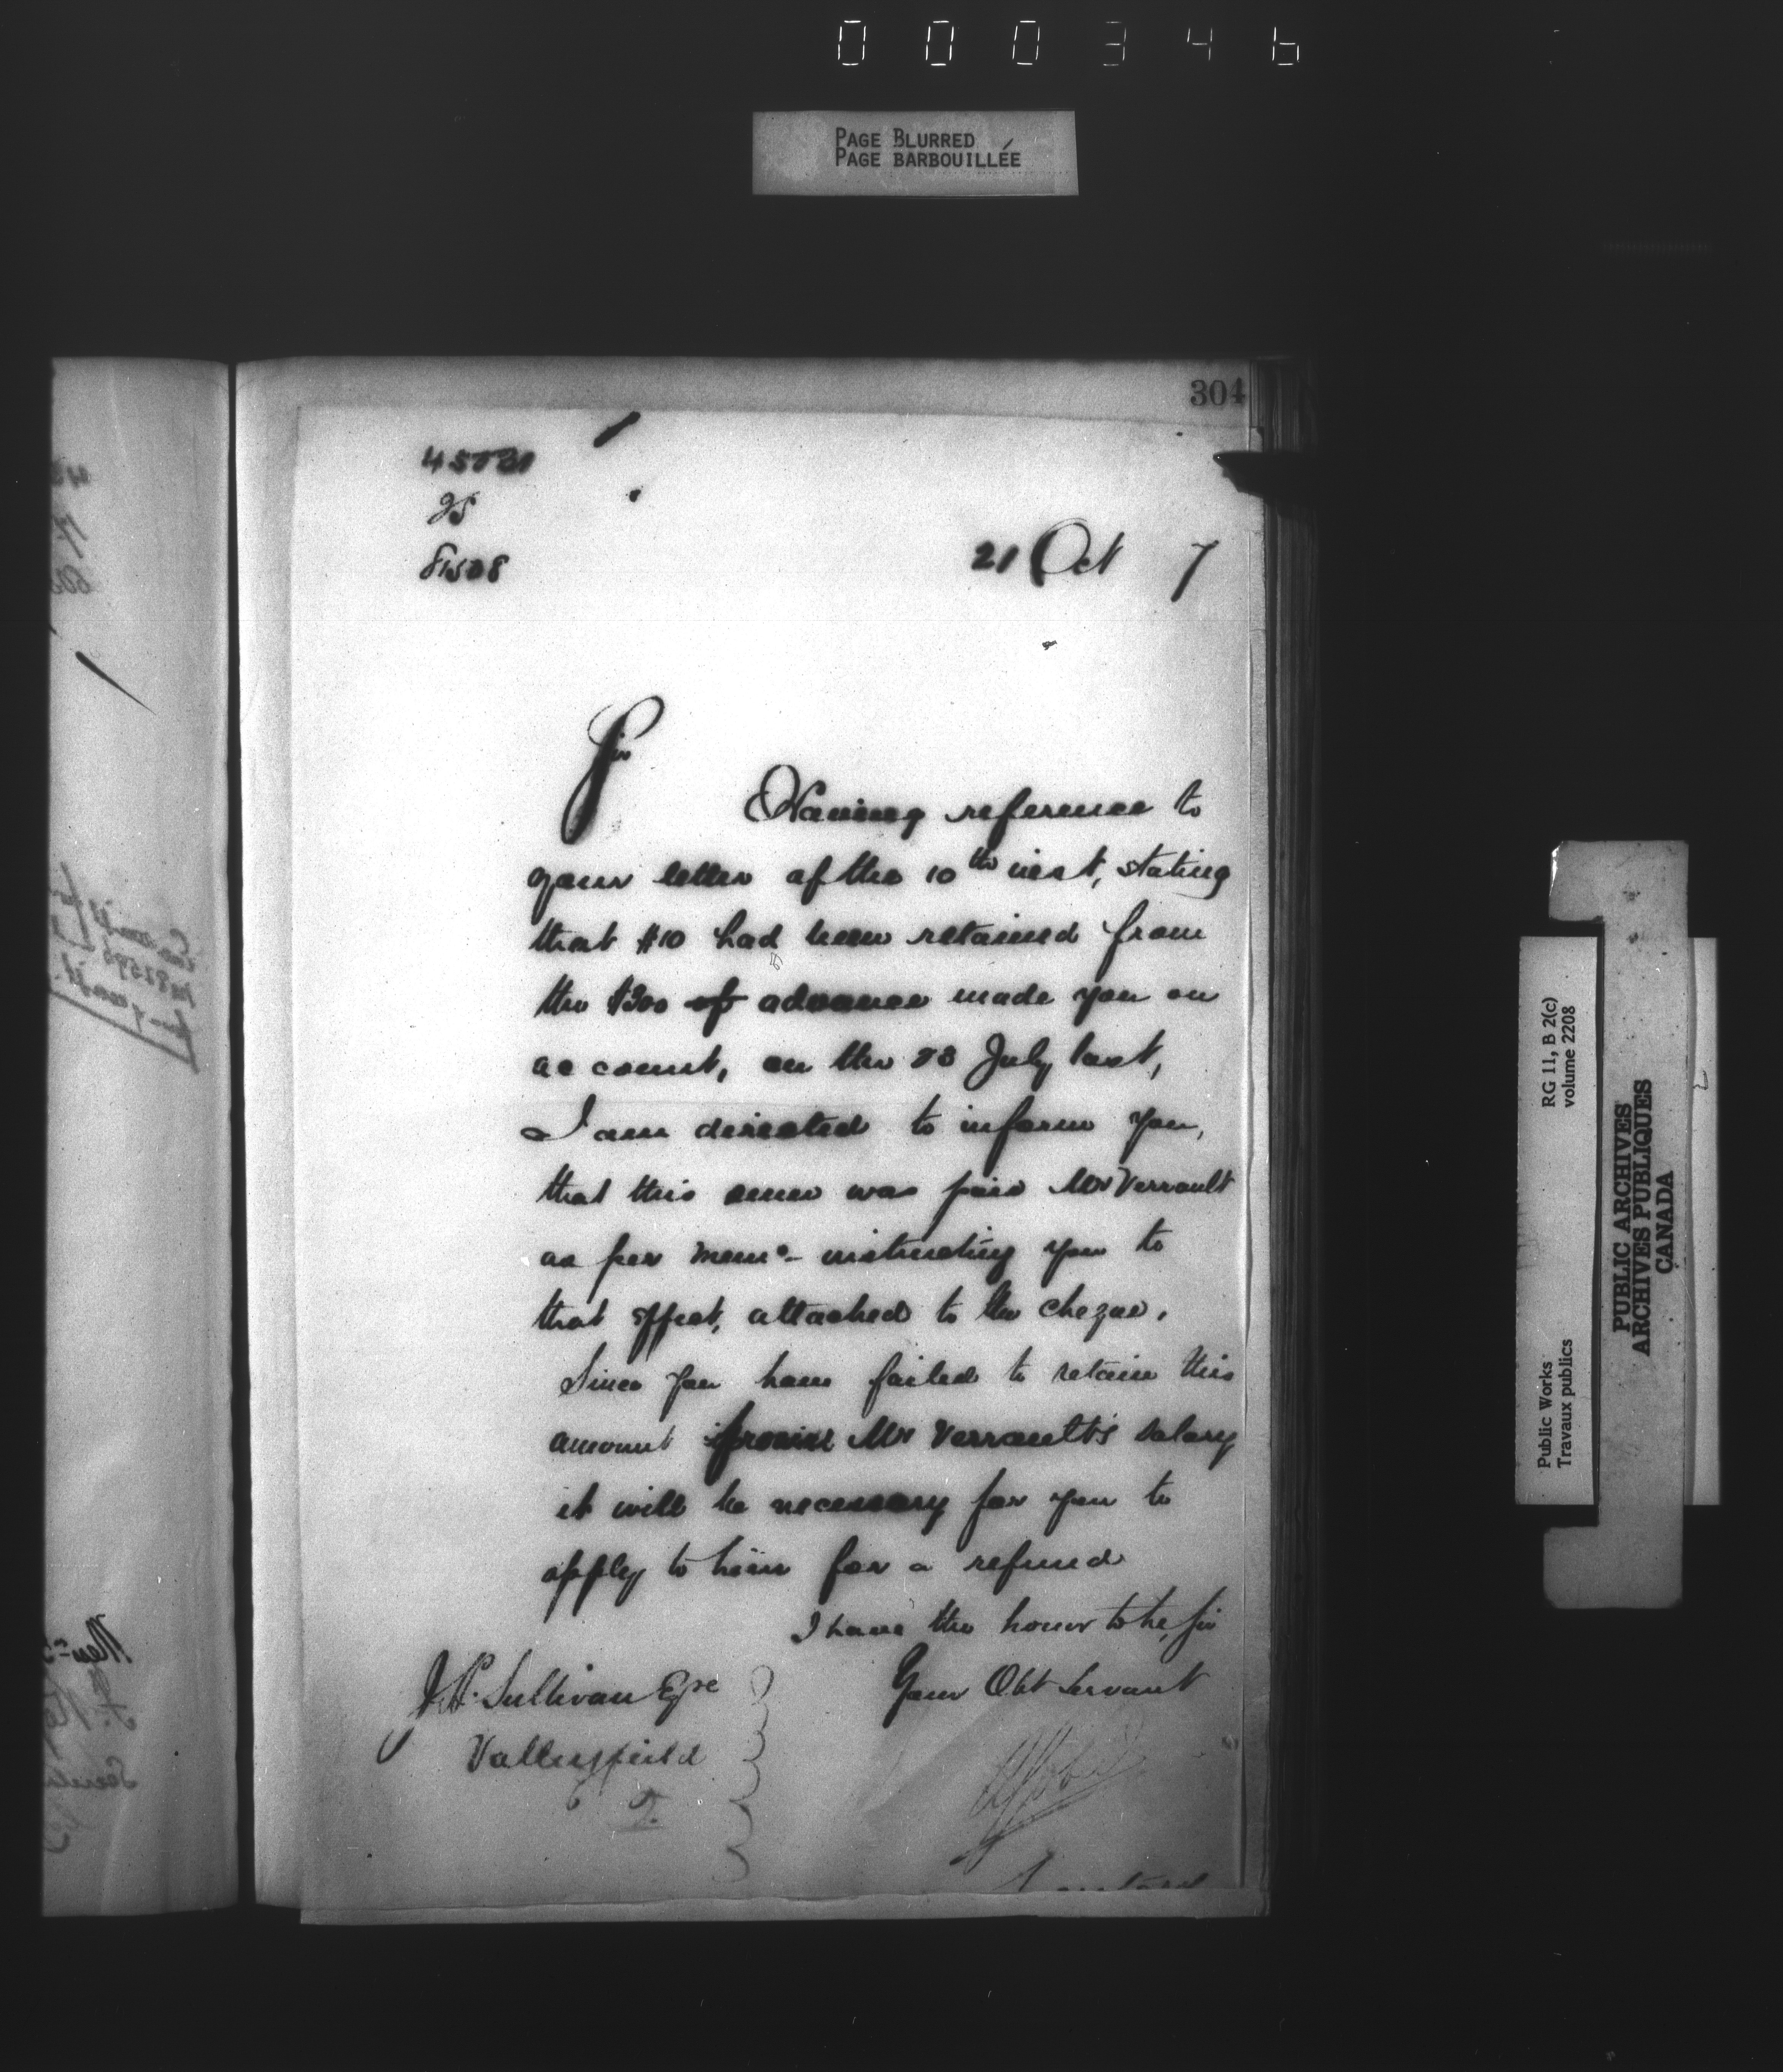 000346
PAGE BLURRED
PAGE BARBOUILLÉE
304
25
81528
21 Oct 7
Sir
Having reference to
your letter of the 10th inst, stating
that $10 had been retained from
the $300 of advance made you on
account, on the 23 July last,
I am directed to inform you,
that this sum was paid Mr Verrault
as per memo- instructing you to
that effect, attached to the cheque.
Since you have failed to retain this
amount from Mr Verrault's salary
it will be necessary for you to
apply to him for a refund
I have the honor to be, Sir
Your Obt Servant
Sullivan Eqre
Valleyfield
RG 11, B 2(c)
volume 2208
Public Works
Travaux publics
PUBLIC ARCHIVES
ARCHIVES PUBLIQUES
CANADA